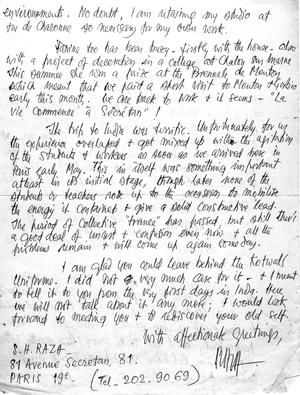 environments. No doubt, I am retaining my studio at
rue de Charonne so necessary for my own work.
Janine too has been busy - firstly with the house - also
with a project of decoration in a College at Chalon sur Marne
This summer she won a prize at the Biennale de Menton
which meant that we paid a short visit to Menton & Gorbio
early this month. We are back to work & it seems - "La
vie Commence" à Secrétan"!
The trip to India was terrific. Unfortunately for us
the experience overlaped & got mixed up with the agitation
of the students & workers as soon as we arrived here in
Paris early May. This in itself was something important
atleast in its initial stage, though later none of the
students or teachers rose up to the occasion to mobilize
the energy it contained & give a solid constructive lead.
The period of collective "trance" has passed, but still there's
a good deal of unrest & confusion even now & all the
problems remain & will come up again some day.
I am glad you could leave behind the
Uniforme. I did not very much care for it - & I meant
to tell it to you from the very first days in India. Here
we will not talk about it any more; & I would look
forward to meeting you & to rediscover your old self.
With affectionate greetings,
S. H. RAZA
81 Avenue Secretan, 81.
PARIS 19e. (Tel. 202. 90 69)
RAZA